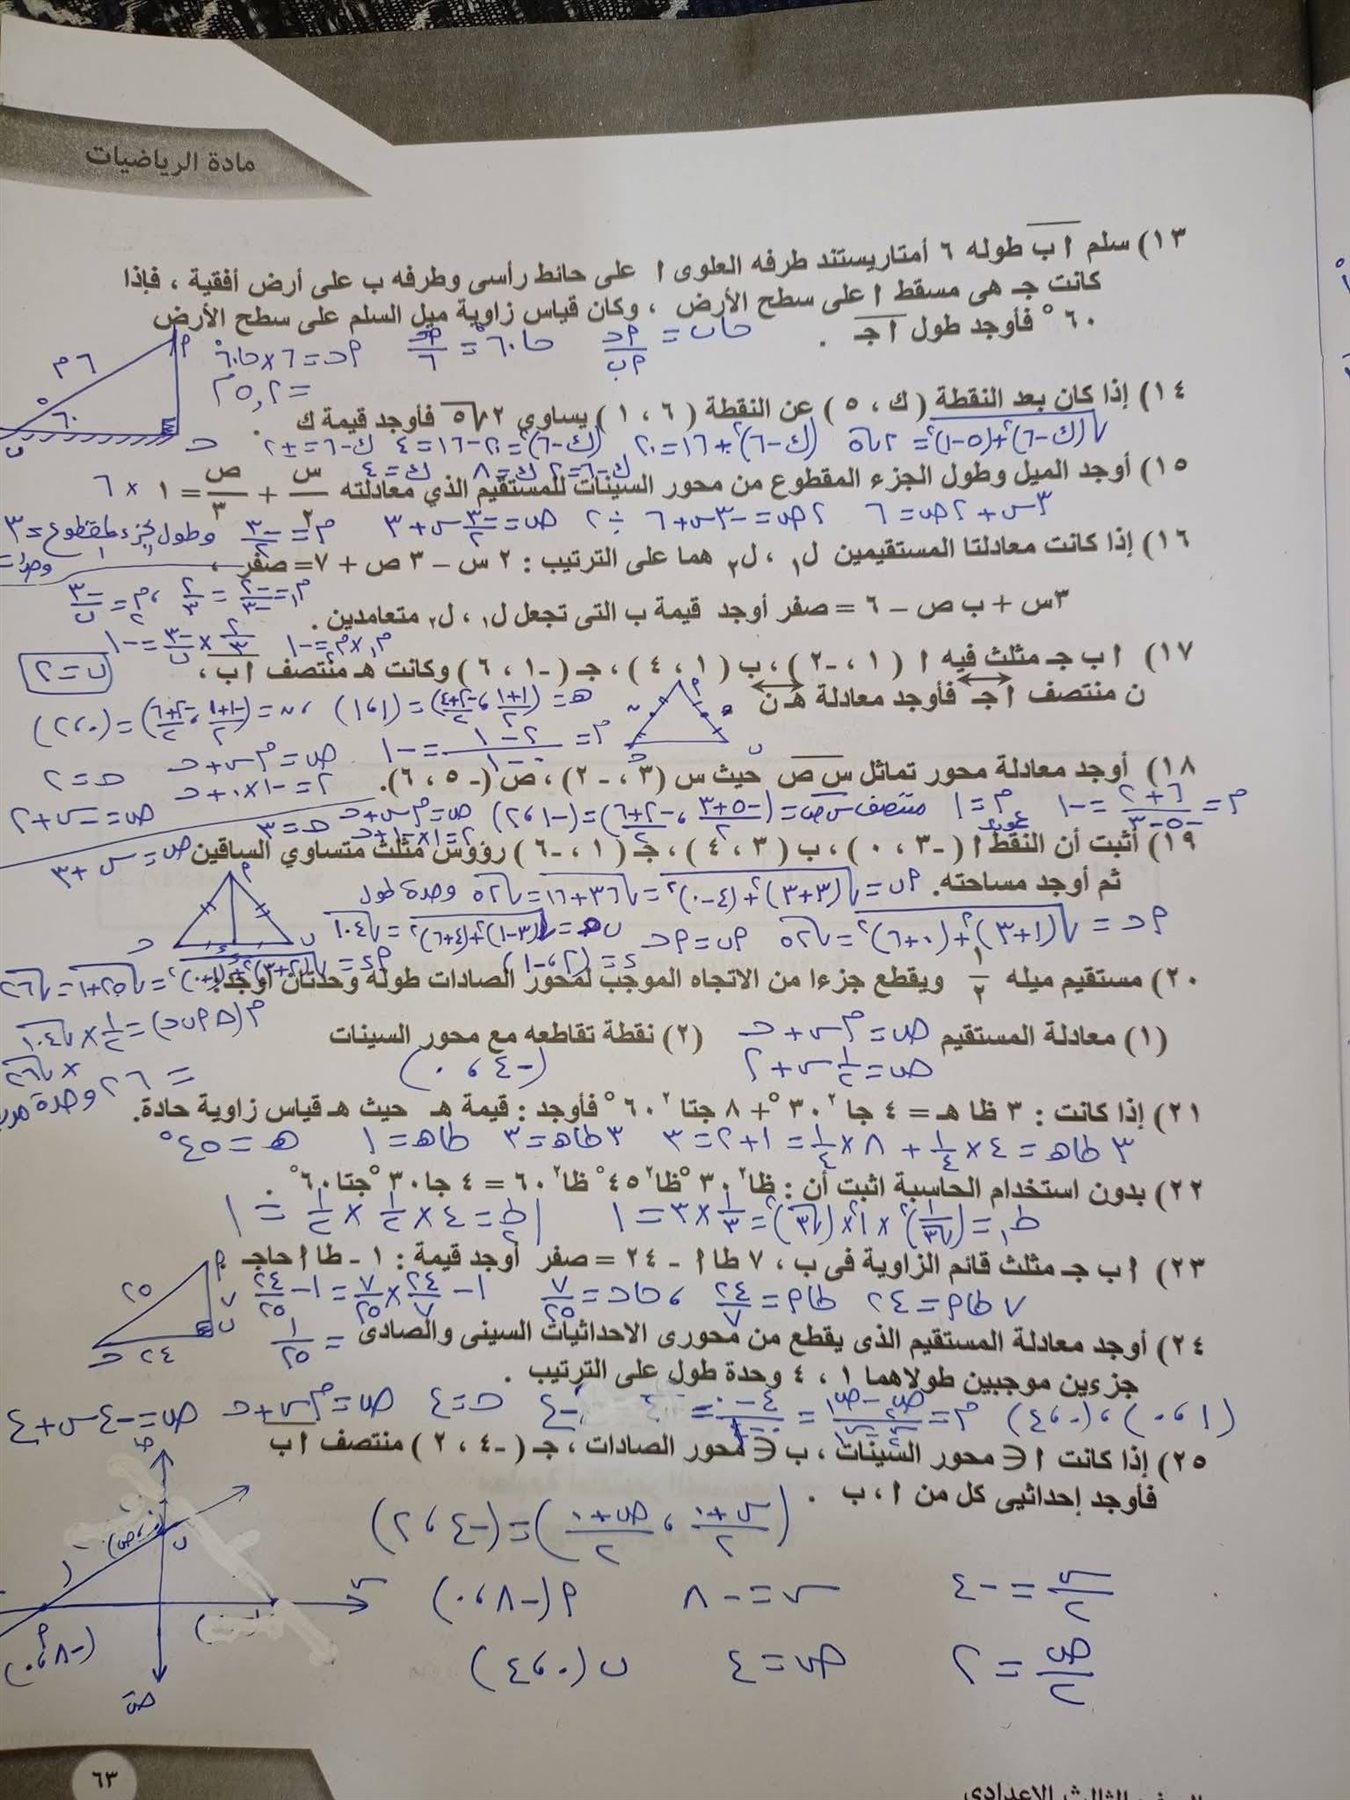 مادة الرياضيات
١٣) سلم ا ب طوله ٦ أمتار يستند طرفه العلوى ا على حائط رأسى وطرفه ب على أرض أفقية ، فإذا
كانت جـ هى مسقط ا على سطح الأرض ، وكان قياس زاوية ميل السلم على سطح الأرض
٦٠° فأوجد طول ا جـ .
حا ب = م‍ح/م‍ب حا ٦٠° = م‍ح/٦ م‍ح = ٦ × حا ٦٠°
= ٥,٢ م
١٤) إذا كان بعد النقطة ( ك ، ٥ ) عن النقطة ( ٦ ، ١ ) يساوي ٢√٥ فأوجد قيمة ك .
√(ك-٦)²+(٥-١)² = ٢√٥ (ك-٦)²+١٦=٢٠ (ك-٦)²=٢٠-١٦=٤ ك-٦=±٢
ك-٦=٢ ك=٨ ك=٤
١٥) أوجد الميل وطول الجزء المقطوع من محور السينات للمستقيم الذي معادلته س/٢ + ص/٣ = ١ × ٦
٣س+٢ص=٦ ٢ص=-٣س+٦ ÷٢ ص=-٣/٢ س+٣ م=-٣/٢ وطول الجزء المقطوع=٣
١٦) إذا كانت معادلتا المستقيمين ل١ ، ل٢ هما على الترتيب : ٢ س – ٣ ص + ٧ = صفر ،
م١=-٢/-٣=٢/٣ ، م٢=-٣/ب
٣س + ب ص – ٦ = صفر أوجد قيمة ب التى تجعل ل١ ، ل٢ متعامدين .
م١×م٢=-١ ٢/٣×-٣/ب=-١
ب=٢
١٧) ا ب جـ مثلث فيه ا ( ١ ، -٢ ) ، ب ( ١ ، ٤ ) ، جـ ( -١ ، ٦ ) وكانت هـ منتصف ا ب ،
ن منتصف ا جـ فأوجد معادلة هـ ن
هـ=(١+١/٢ ، -٢+٤/٢)=(١،١) ، ن=(-١+١/٢ ، -٢+٦/٢)=(٠،٢)
م=٢-١/٠-١=-١ ص=م س+ح ٢=-١×٠+ح ح=٢
ص=-س+٢
١٨) أوجد معادلة محور تماثل س ص حيث س (٣ ، - ٢) ، ص (- ٥ ، ٦).
م=٦+٢/-٥-٣=-١ م=١ عمودي منتصف س ص=(-٥+٣/٢ ، -٢+٦/٢)=(-١،٢) ص=م س+ح
٢=١×-١+ح ح=٣
ص=س+٣
١٩) أثبت أن النقط ا ( -٣ ، ٠ ) ، ب ( ٣ ، ٤ ) ، جـ ( ١ ، -٦ ) رؤوس مثلث متساوي الساقين
ثم أوجد مساحته.
م‍ب=√(٣+٣)²+(٤-٠)²=√٣٦+١٦=√٥٢ وحدة طول
م‍ح=√(١+٣)²+(٠+٦)²=√٥٢ م‍ب=م‍ح ب‍ح=√(١-٣)²+(٤+٦)²=√١٠٤
ء=(٢،-١) م‍ء=√(٢+٣)²+(١+٠)²=√٢٥+١=√٢٦
٢٠) مستقيم ميله ١/٢ ويقطع جزءا من الاتجاه الموجب لمحور الصادات طوله وحدتان أوجد:
م(∆ م‍ب‍ح)=١/٢×√١٠٤
×√٢٦
= ٢٦ وحدة مرب
(١) معادلة المستقيم (٢) نقطة تقاطعه مع محور السينات
ص=م س+ح
ص=١/٢ س+٢ (-٤ ، ٠)
٢١) إذا كانت : ٣ ظا هـ = ٤ جا٢ ٣٠° + ٨ جتا٢ ٦٠° فأوجد : قيمة هـ حيث هـ قياس زاوية حادة.
٣ طا هـ=٤×١/٤+٨×١/٤=١+٢=٣ ٣ طا هـ=٣ طا هـ=١ هـ=٤٥°
٢٢) بدون استخدام الحاسبة اثبت أن : ظا٢ ٣٠° ظا٢ ٤٥° ظا٢ ٦٠° = ٤ جا ٣٠° جتا ٦٠° .
ط١=(١/√٣)²×١²×(√٣)²=١/٣×٣=١ ط٢=٤×١/٢×١/٢=١
٢٣) ا ب جـ مثلث قائم الزاوية فى ب ، ٧ طا ا - ٢٤ = صفر أوجد قيمة : ١ - طا ا حا جـ
٧ طا م‍=٢٤ طا م‍=٢٤/٧ ، حا ح=٧/٢٥ ١-٢٤/٧×٧/٢٥=١-٢٤/٢٥
= ١/٢٥
٢٤) أوجد معادلة المستقيم الذى يقطع من محورى الاحداثيات السينى والصادى
جزءين موجبين طولاهما ١ ، ٤ وحدة طول على الترتيب .
(١،٠) ، (٠،٤) ح=٤ ص=م س+ح ص=-٤س+٤
٢٥) إذا كانت ا ∈ محور السينات ، ب ∈ محور الصادات ، جـ ( -٤ ، ٢ ) منتصف ا ب
فأوجد إحداثيى كل من ا ، ب .
(س+٠/٢ ، ص+٠/٢)=(-٤،٢)
س/٢=-٤ س=-٨ م‍(-٨،٠)
ص/٢=٢ ص=٤ ب(٠،٤)
٦٣